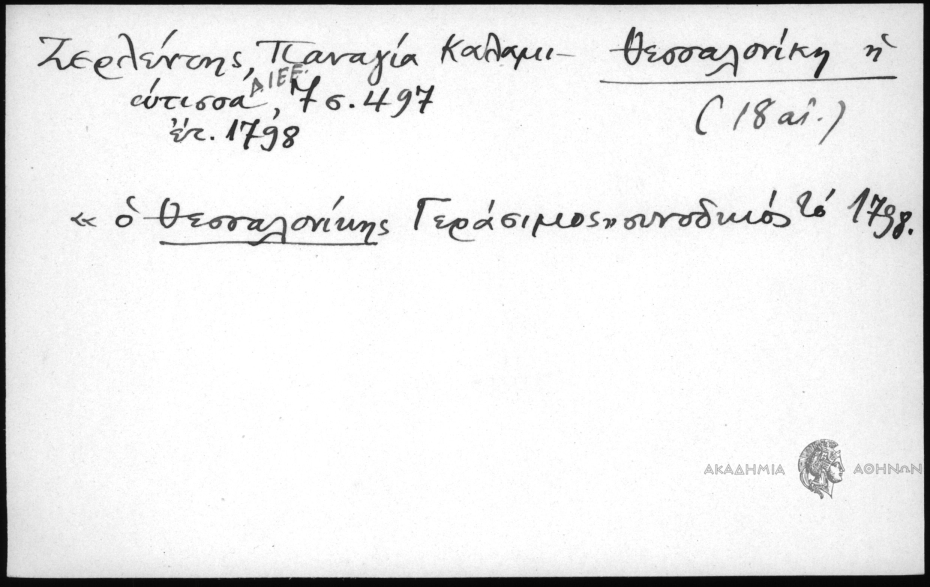 Ζερλέντης, Παναγία Καλαμι- Θεσσαλονίκη ἡ
ώτισσα ΔΙΕΕ, 7 σ. 497 (18 αἰ.)
ἔτ. 1798
« ὁ Θεσσαλονίκης Γεράσιμος» συνοδικός τό 1798.
ΑΚΑΔΗΜΙΑ ΑΘΗΝΩΝ